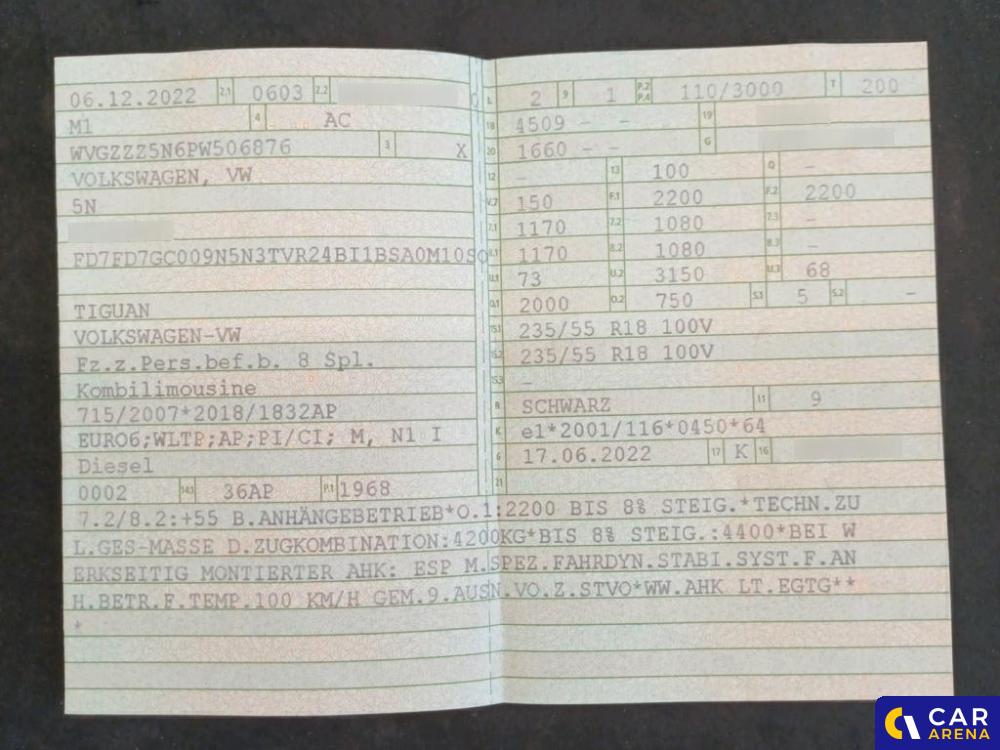 06.12.2022 2.1 0603 2.2
M1 4 AC
WVGZZZ5N6PW506876 3 X
VOLKSWAGEN, VW
5N
FD7FD7GC009N5N3TVR24BI1BSA0M10S
TIGUAN
VOLKSWAGEN-VW
Fz.z.Pers.bef.b. 8 Spl.
Kombilimousine
715/2007*2018/1832AP
EURO6;WLTP;AP;PI/CI; M, N1 I
Diesel
0002 14.1 36AP P.1 1968
L 2 9 1 P.2 P.4 110/3000 T 200
18 4509 - - 19
20 1660 - - G
12 - 13 100 Q -
V.7 150 F.1 2200 F.2 2200
7.1 1170 7.2 1080 7.3 -
8.1 1170 8.2 1080 8.3 -
U.1 73 U.2 3150 U.3 68
O.1 2000 O.2 750 S.1 5 S.2 -
15.1 235/55 R18 100V
15.2 235/55 R18 100V
15.3 -
R SCHWARZ 11 9
K e1*2001/116*0450*64
6 17.06.2022 17 K 16
21
7.2/8.2:+55 B.ANHÄNGEBETRIEB*O.1:2200 BIS 8% STEIG.*TECHN.ZU
L.GES-MASSE D.ZUGKOMBINATION:4200KG*BIS 8% STEIG.:4400*BEI W
ERKSEITIG MONTIERTER AHK: ESP M.SPEZ.FAHRDYN.STABI.SYST.F.AN
H.BETR.F.TEMP.100 KM/H GEM.9.AUSN.VO.Z.STVO*WW.AHK LT.EGTG**
*
CAR
ARENA